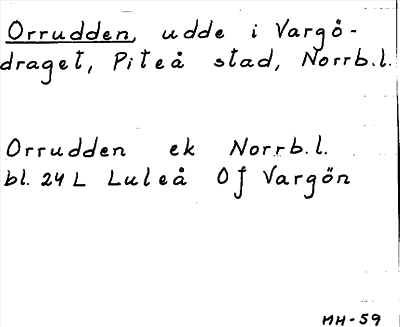 Orrudden, udde i Vargö-
draget, Piteå stad, Norrb.l.
Orrudden ek Norrb.l.
bl. 24 L Luleå Of Vargön
MH-59